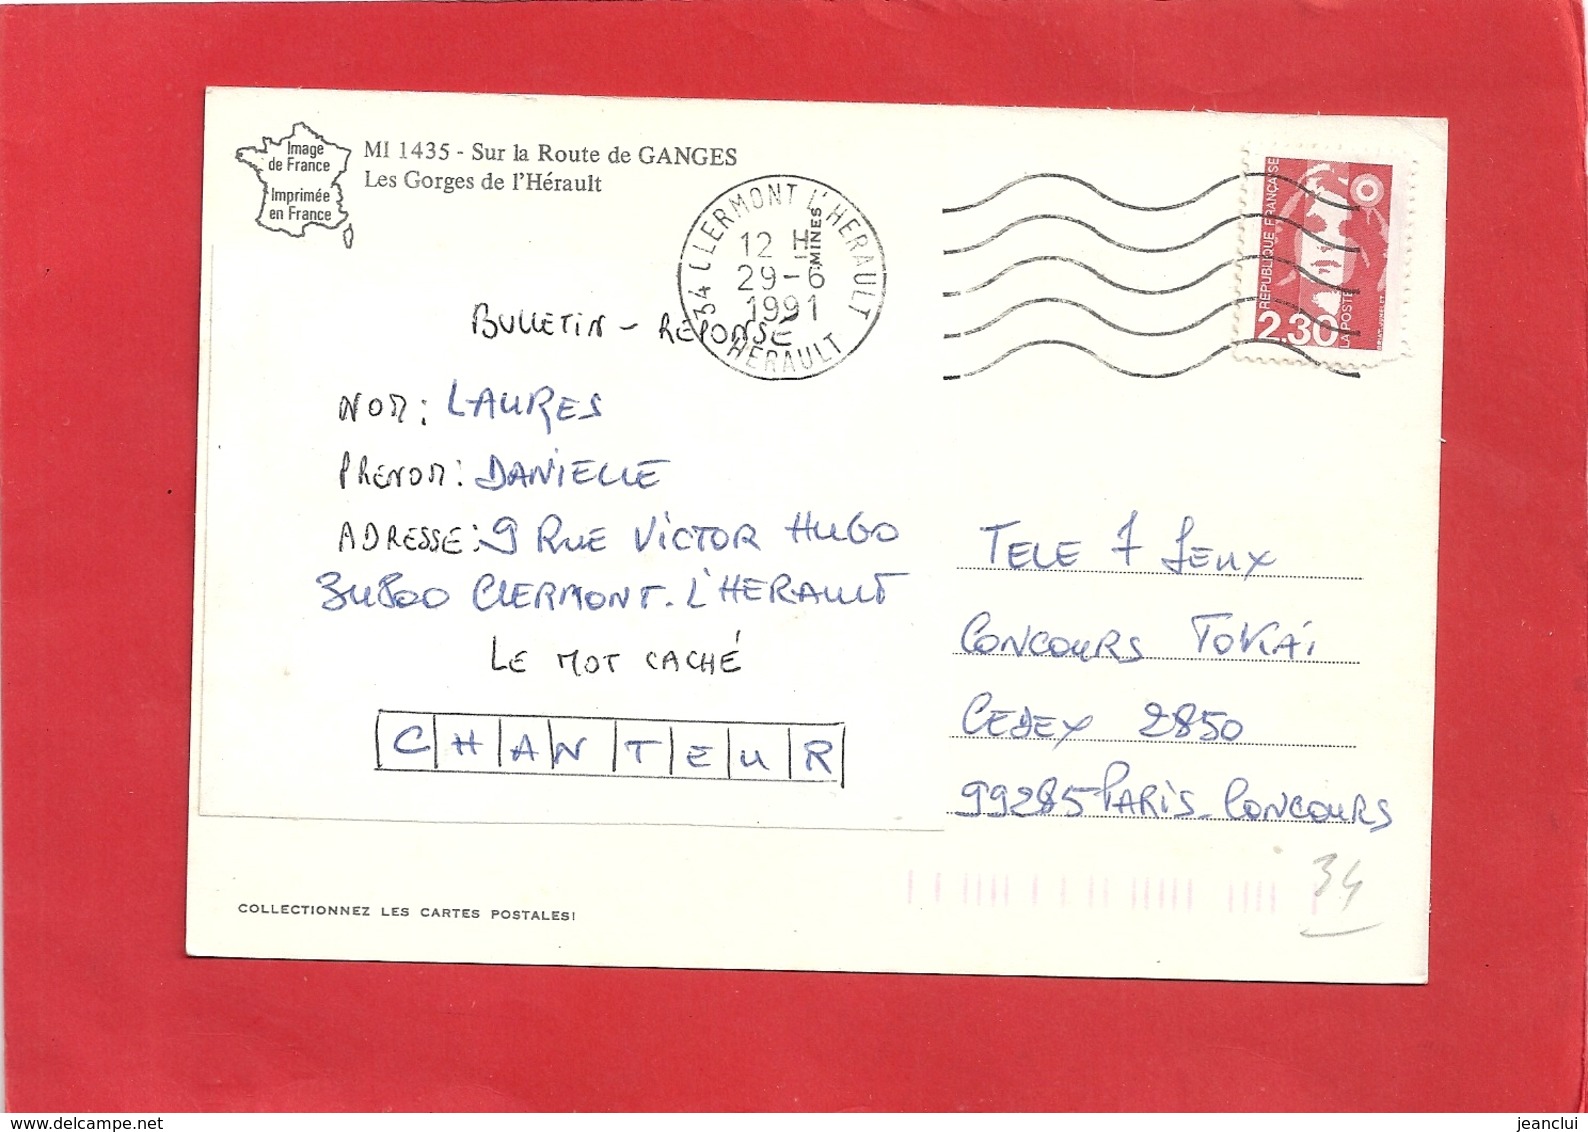 Image
de France
Imprimée
en France
MI 1435 - Sur la Route de GANGES
Les Gorges de l'Hérault
34 CLERMONT L'HERAULT
HERAULT
12 H
29-6
1991
MINES
RÉPUBLIQUE FRANÇAISE
2.30
LA POSTE
BULLETIN - REPONSE
NOM: LAURES
PRENOM: DANIELLE
ADRESSE: 9 RUE VICTOR HUGO
34800 CLERMONT. L'HERAULT
LE MOT CACHÉ
CHANTEUR
TELE 7 JEUX
CONCOURS TOKAI
CEDEX 2850
99285 PARIS-CONCOURS
34
COLLECTIONNEZ LES CARTES POSTALES!
jeanclui